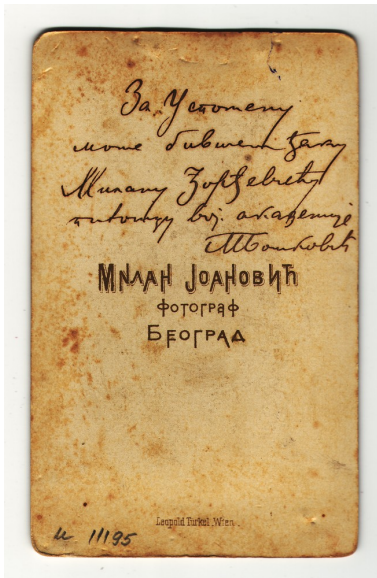 За Успомену
моме бившем ђаку
Милану Ђорђевићу
питомцу вој. академије
МИЛАН ЈОАНОВИЋ
ФОТОГРАФ
БЕОГРАД
Leopold Türkel, Wien.
и 11195